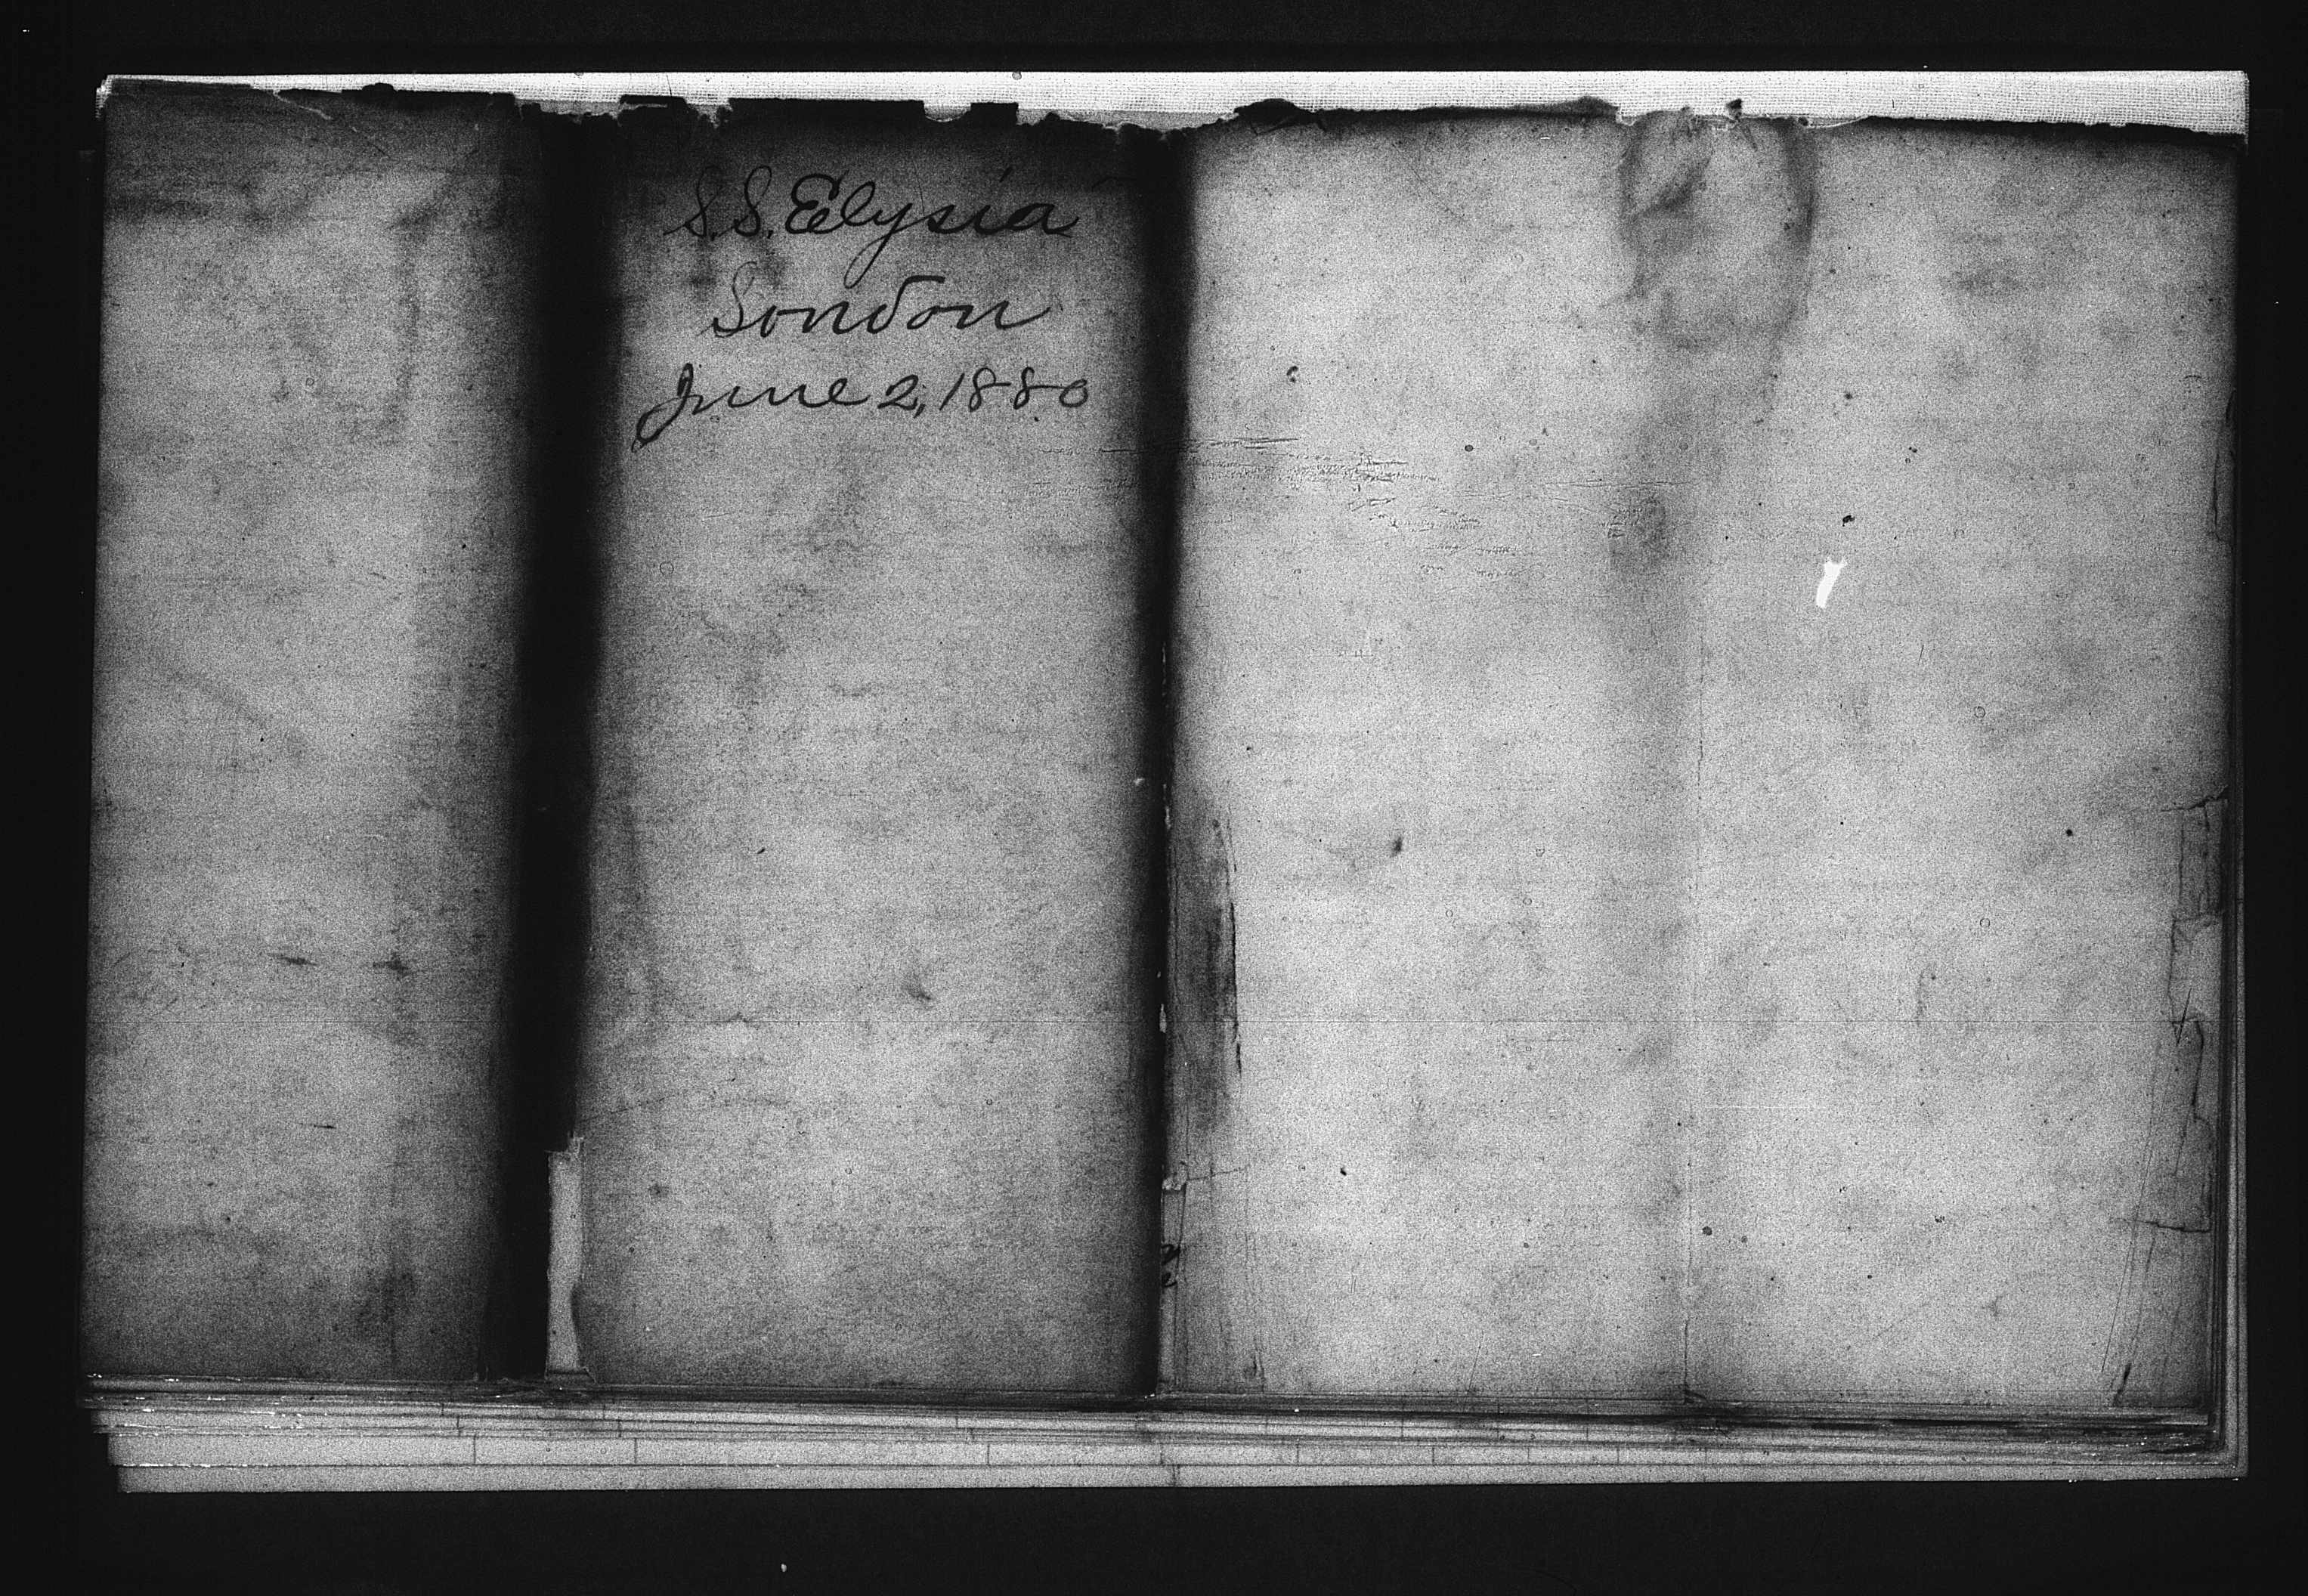 S.S. Elysia
London
June 2, 1880